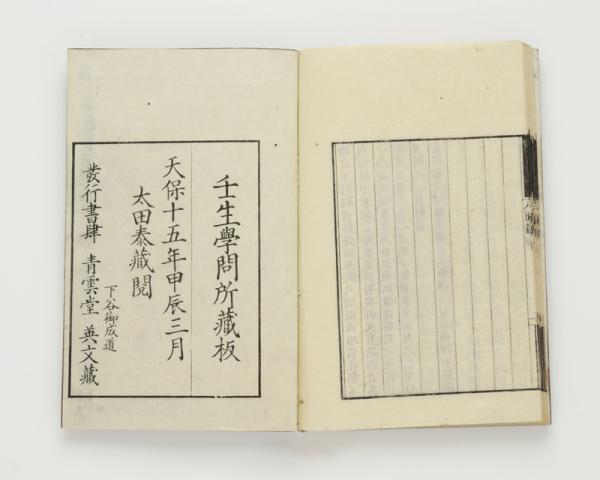 壬生學問所藏板
天保十五年甲辰三月
太田泰藏閱
下谷御成道
發行書肆 青雲堂 英文藏